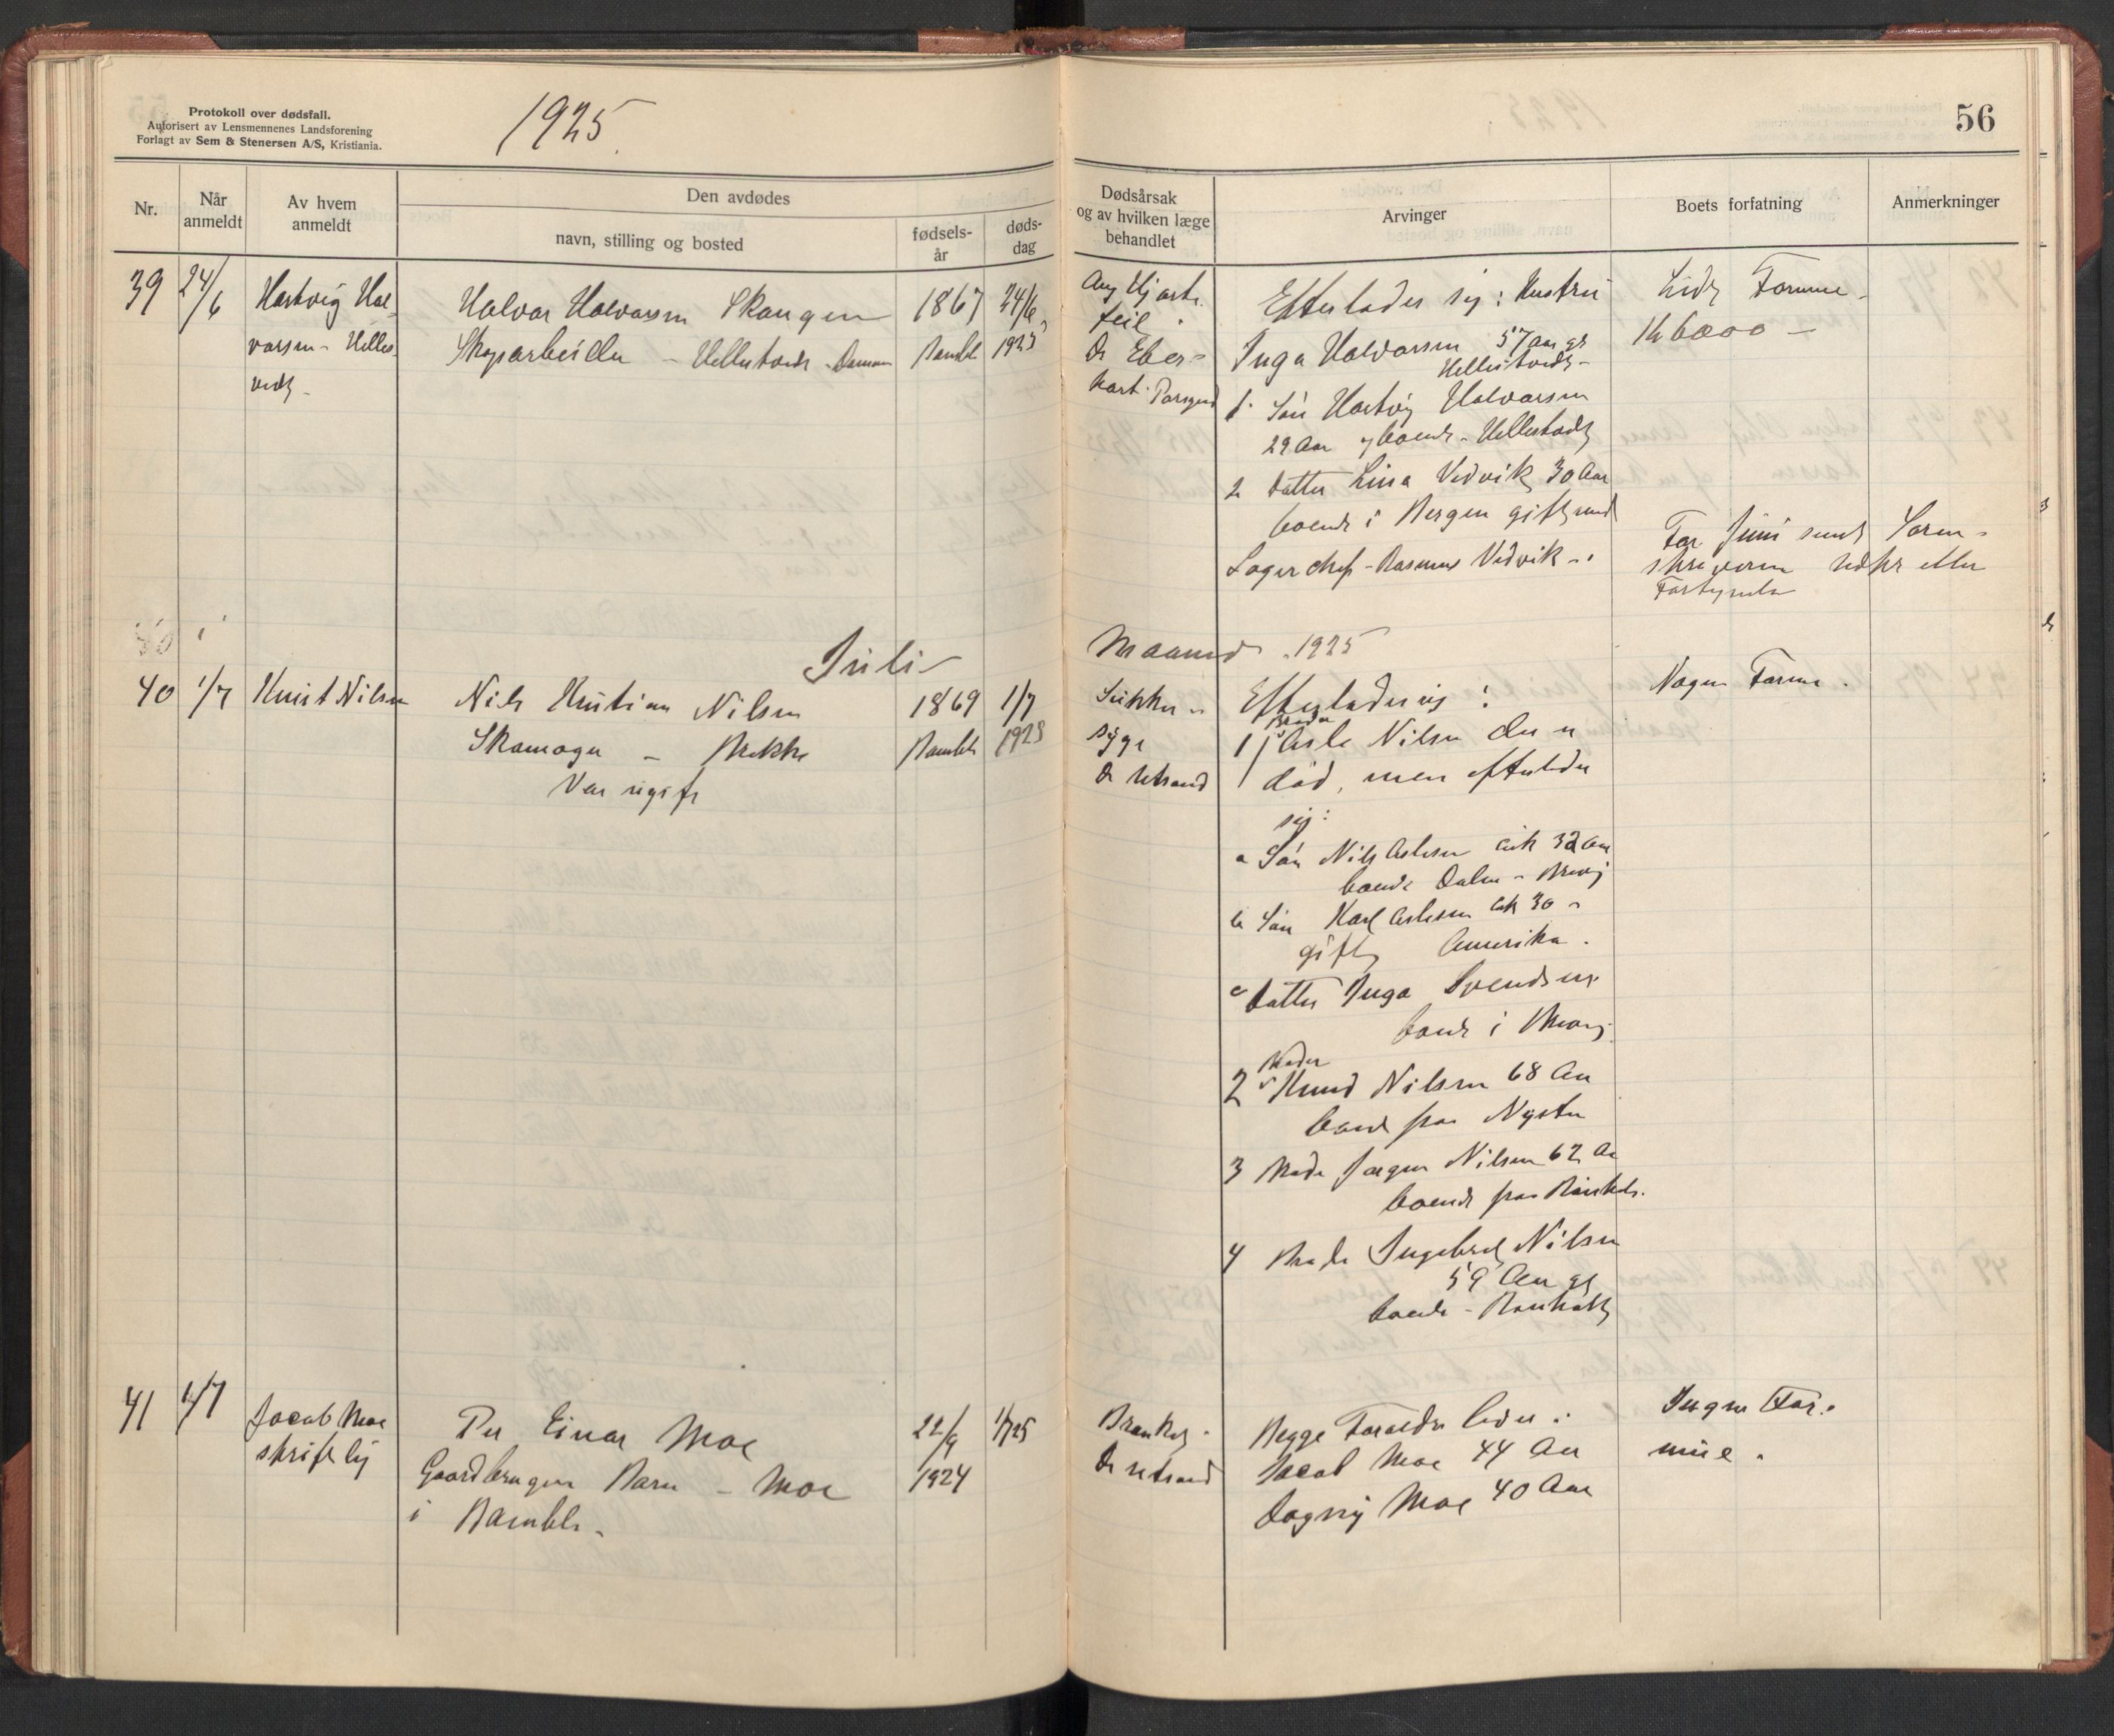 Protokoll over dødsfall.
Autorisert av Lensmennenes Landsforening
Forlagt av Sem & Stenersen A/S, Kristiania.
1925
56
Nr.
Når anmeldt
Av hvem anmeldt
Den avdødes
navn, stilling og bosted
fødsels-år
døds-dag
Dødsårsak og av hvilken læge behandlet
Arvinger
Boets forfatning
Anmerkninger
39 24/6 Hartvig Hal-
varsen - Helles-
Halvor Halvorsen Skaugen
Skogarbeider - Hellestvedt
1867
Bamble
24/6
1925
Ang Hjerte-
feil.
Dr Eber-
hart. Porsgrund
Efterlader sig: Hustru
Inga Halvorsen 57 Aar gl
Hellestvedt -
1. Søn Hartvig Halvorsen
29 Aar boende - Hellestvedt
2 Datter Lina Vedvik 30 Aar
boende i Bergen gift med
Lagerchef - Rasmus Vedvik -
Lidt Formue -
6000 -
For Juni sendt Soren-
skriveren
Juli Maaned 1925
40 1/7 Knut Nilsen
Nils Kristian Nilsen
Skomager - Brekke
Var ugift
1869
Bamble
1/7
1925
Sukker-
syge
Dr
Efterlader sig:
1 Broder Asle Nilsen der er
død, men efterlader
sig:
a Søn Nils Aslesen 32 Aar
boende Dalen - Brevig
b Søn Karl Aslesen 30 -
gift Amerika.
c Datter Inga Svendsen
boende i Brevig
2 Broder Knud Nilsen 68 Aar
boende paa
3 Broder Jørgen Nilsen 62 Aar
boende paa
4 Broder Ingebret Nilsen
59 Aar gl
boende -
Nogen Formue.
41 4/7 Jacob Moe
skriftlig
Per Einar Moe
Gaardbruger Barn - Moe
i Bamble -
22/9
1924
1/7 25
Dr
Begge Forældre lever:
Jacob Moe 44 Aar
Dagny Moe 40 Aar
Ingen For-
mue.